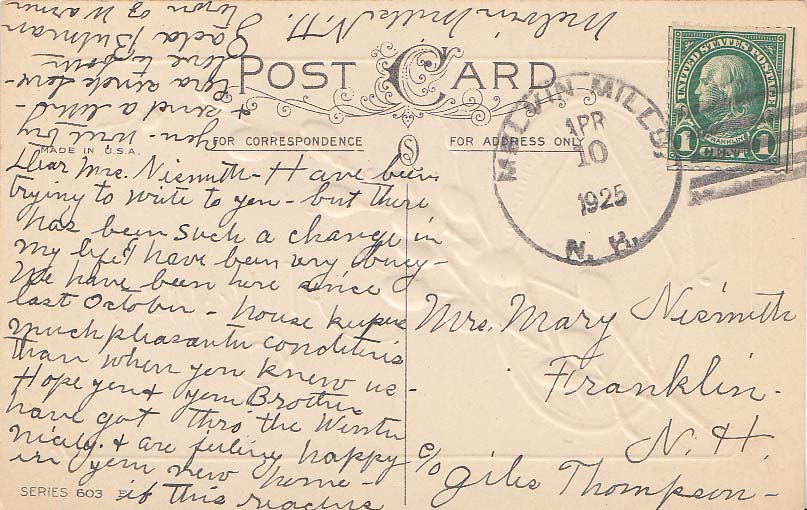 POST CARD
FOR CORRESPONDENCE
FOR ADDRESS ONLY
MADE IN U.S.A.
Dear Mrs. Nismith - Have been
trying to write to you - but there
has been such a change in
my life I have been very busy -
We have been here since
last October - house keeper
much pleasanter conditions
than when you knew us -
Hope you & your Brother
have got thro the Winter
nicely & are feeling happy
in your new home -
if this reaches
you will try
& send a
here
Town of Warner
Melvin Mills N.H.
SERIES 603
UNITED STATES POSTAGE
FRANKLIN
1 CENT 1
MELVIN MILLS,
APR
10
1925
N. H.
Mrs. Mary Nismith
Franklin -
N. H.
c/o Giles Thompson -